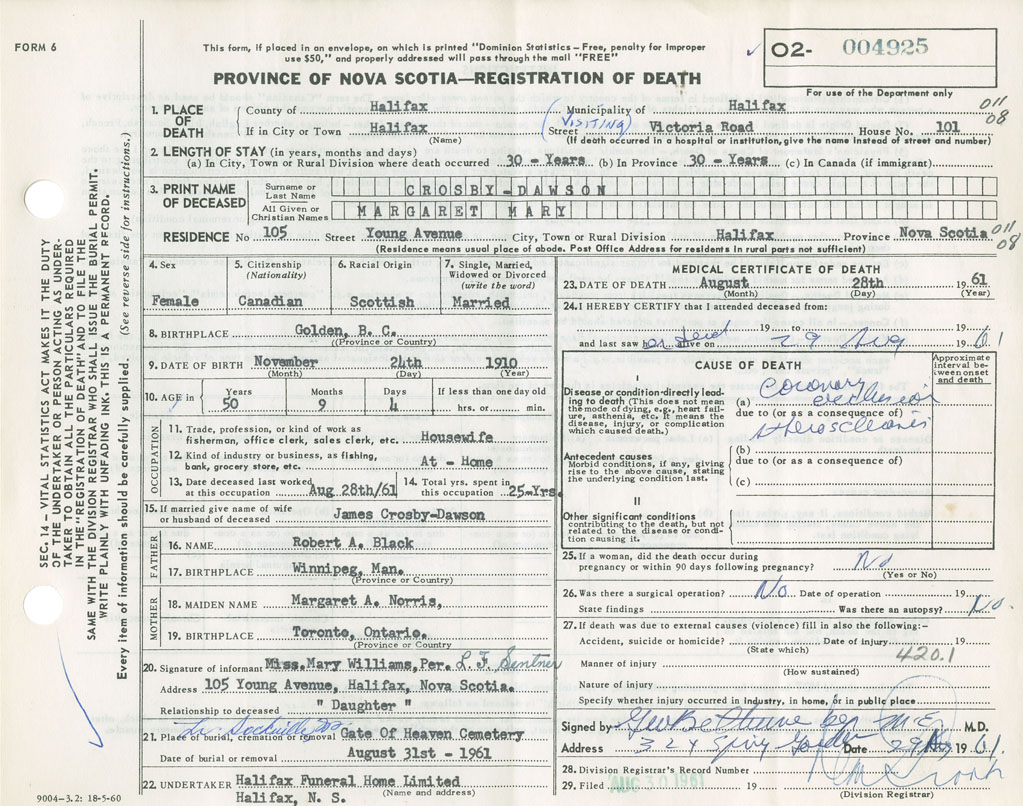 FORM 6
This form, if placed in an envelope, on which is printed "Dominion Statistics – Free, penalty for improper
use $50," and properly addressed will pass through the mail "FREE"
02- 004925
For use of the Department only
PROVINCE OF NOVA SCOTIA—REGISTRATION OF DEATH
SEC. 14 – VITAL STATISTICS ACT MAKES IT THE DUTY
OF THE UNDERTAKER OR PERSON ACTING AS UNDER-
TAKER TO OBTAIN ALL THE PARTICULARS REQUIRED
IN THE "REGISTRATION OF DEATH" AND TO FILE THE
SAME WITH THE DIVISION REGISTRAR WHO SHALL ISSUE THE BURIAL PERMIT.
WRITE PLAINLY WITH UNFADING INK. THIS IS A PERMANENT RECORD.
Every item of information should be carefully supplied. (See reverse side for instructions.)
1. PLACE OF DEATH
County of Halifax Municipality of Halifax
011
08
If in City or Town Halifax Street (VISITING) Victoria Road House No. 101
(Name) (If death occurred in a hospital or institution, give the name instead of street and number)
2. LENGTH OF STAY (in years, months and days)
(a) In City, Town or Rural Division where death occurred 30 - Years (b) In Province 30 - Years (c) In Canada (if immigrant)
3. PRINT NAME OF DECEASED
Surname or Last Name CROSBY-DAWSON
All Given or Christian Names MARGARET MARY
RESIDENCE No 105 Street Young Avenue City, Town or Rural Division Halifax Province Nova Scotia
011
08
(Residence means usual place of abode. Post Office Address for residents in rural parts not sufficient)
4. Sex
Female
5. Citizenship (Nationality)
Canadian
6. Racial Origin
Scottish
7. Single, Married, Widowed or Divorced (write the word)
Married
8. BIRTHPLACE Golden, B. C.
(Province or Country)
9. DATE OF BIRTH November 24th 1910
(Month) (Day) (Year)
10. AGE in Years Months Days If less than one day old
50 9 4 hrs. or min.
OCCUPATION
11. Trade, profession, or kind of work as
fisherman, office clerk, sales clerk, etc. Housewife
12. Kind of industry or business, as fishing,
bank, grocery store, etc. At - Home
13. Date deceased last worked at this occupation Aug 28th/61
14. Total yrs. spent in this occupation 25-Yrs.
15. If married give name of wife
or husband of deceased James Crosby-Dawson
FATHER
16. NAME Robert A. Black
17. BIRTHPLACE Winnipeg, Man.
(Province or Country)
MOTHER
18. MAIDEN NAME Margaret A. Norris,
19. BIRTHPLACE Toronto, Ontario.
(Province or Country)
20. Signature of informant Miss. Mary Williams, Per. L. F.
Address 105 Young Avenue, Halifax, Nova Scotia.
Relationship to deceased " Daughter "
21. Place of burial, cremation or removal Gate Of Heaven Cemetery
Date of burial or removal August 31st - 1961
22. UNDERTAKER Halifax Funeral Home Limited
Halifax, N. S. (Name and address)
9004–3.2: 18-5-60
MEDICAL CERTIFICATE OF DEATH
23. DATE OF DEATH August 28th 1961
(Month) (Day) (Year)
24. I HEREBY CERTIFY that I attended deceased from:
19 to 19
and last saw h alive on 29 Aug 1961
CAUSE OF DEATH
Approximate interval between onset and death
I
Disease or condition directly leading to death (This does not mean the mode of dying, e.g., heart failure, asthenia, etc. It means the disease, injury, or complication which caused death.)
(a) Coronary occlusion
due to (or as a consequence of)
Antecedent causes
Morbid conditions, if any, giving rise to the above cause, stating the underlying condition last.
(b)
due to (or as a consequence of)
(c)
II
Other significant conditions
contributing to the death, but not related to the disease or condition causing it.
25. If a woman, did the death occur during
pregnancy or within 90 days following pregnancy? No
(Yes or No)
26. Was there a surgical operation? No. Date of operation 19
State findings Was there an autopsy? No.
27. If death was due to external causes (violence) fill in also the following:–
Accident, suicide or homicide? Date of injury 19
(State which)
420.1
Manner of injury
(How sustained)
Nature of injury
Specify whether injury occurred in industry, in home, or in public place
Signed by M.E. M.D.
Address 324 Spring Garden Date 29 Aug 1961.
28. Division Registrar's Record Number
29. Filed AUG 30 1961 19
(Division Registrar)